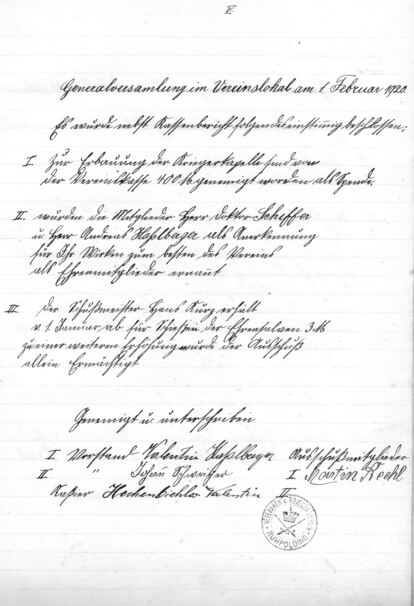 II.
Generalversamlung im Vereinslokal am 1. Februar 1920.
Es wurde nebst Kassenbericht folgendes einstimig beschlossen:
I. Zur Erbauung der Kriegerkapelle sind von
der Vereinskasse 400 M genemigt worden als Spende.
II. wurden die Mitglieder Herr Doktor
u Herr Andreas Haßlberger als Anerkennung
für Ihr Wirken zum besten des Vereins
als Ehrenmitglieder ernannt.
III. Der Schußmeister Hans Kurz erhält
v. 1. Januar ab für Schießen der Ehrensalven 3 M
zu einer weiteren Erhöhung wurde der Ausschuß
allein Ermächtigt
Genemigt u. unterschrieben
I Vorstand Valentin Haßlberger Ausschußmitglieder
II " Johann I. Martin
Kassier Hechenbichler Valentin II
RUHPOLDING